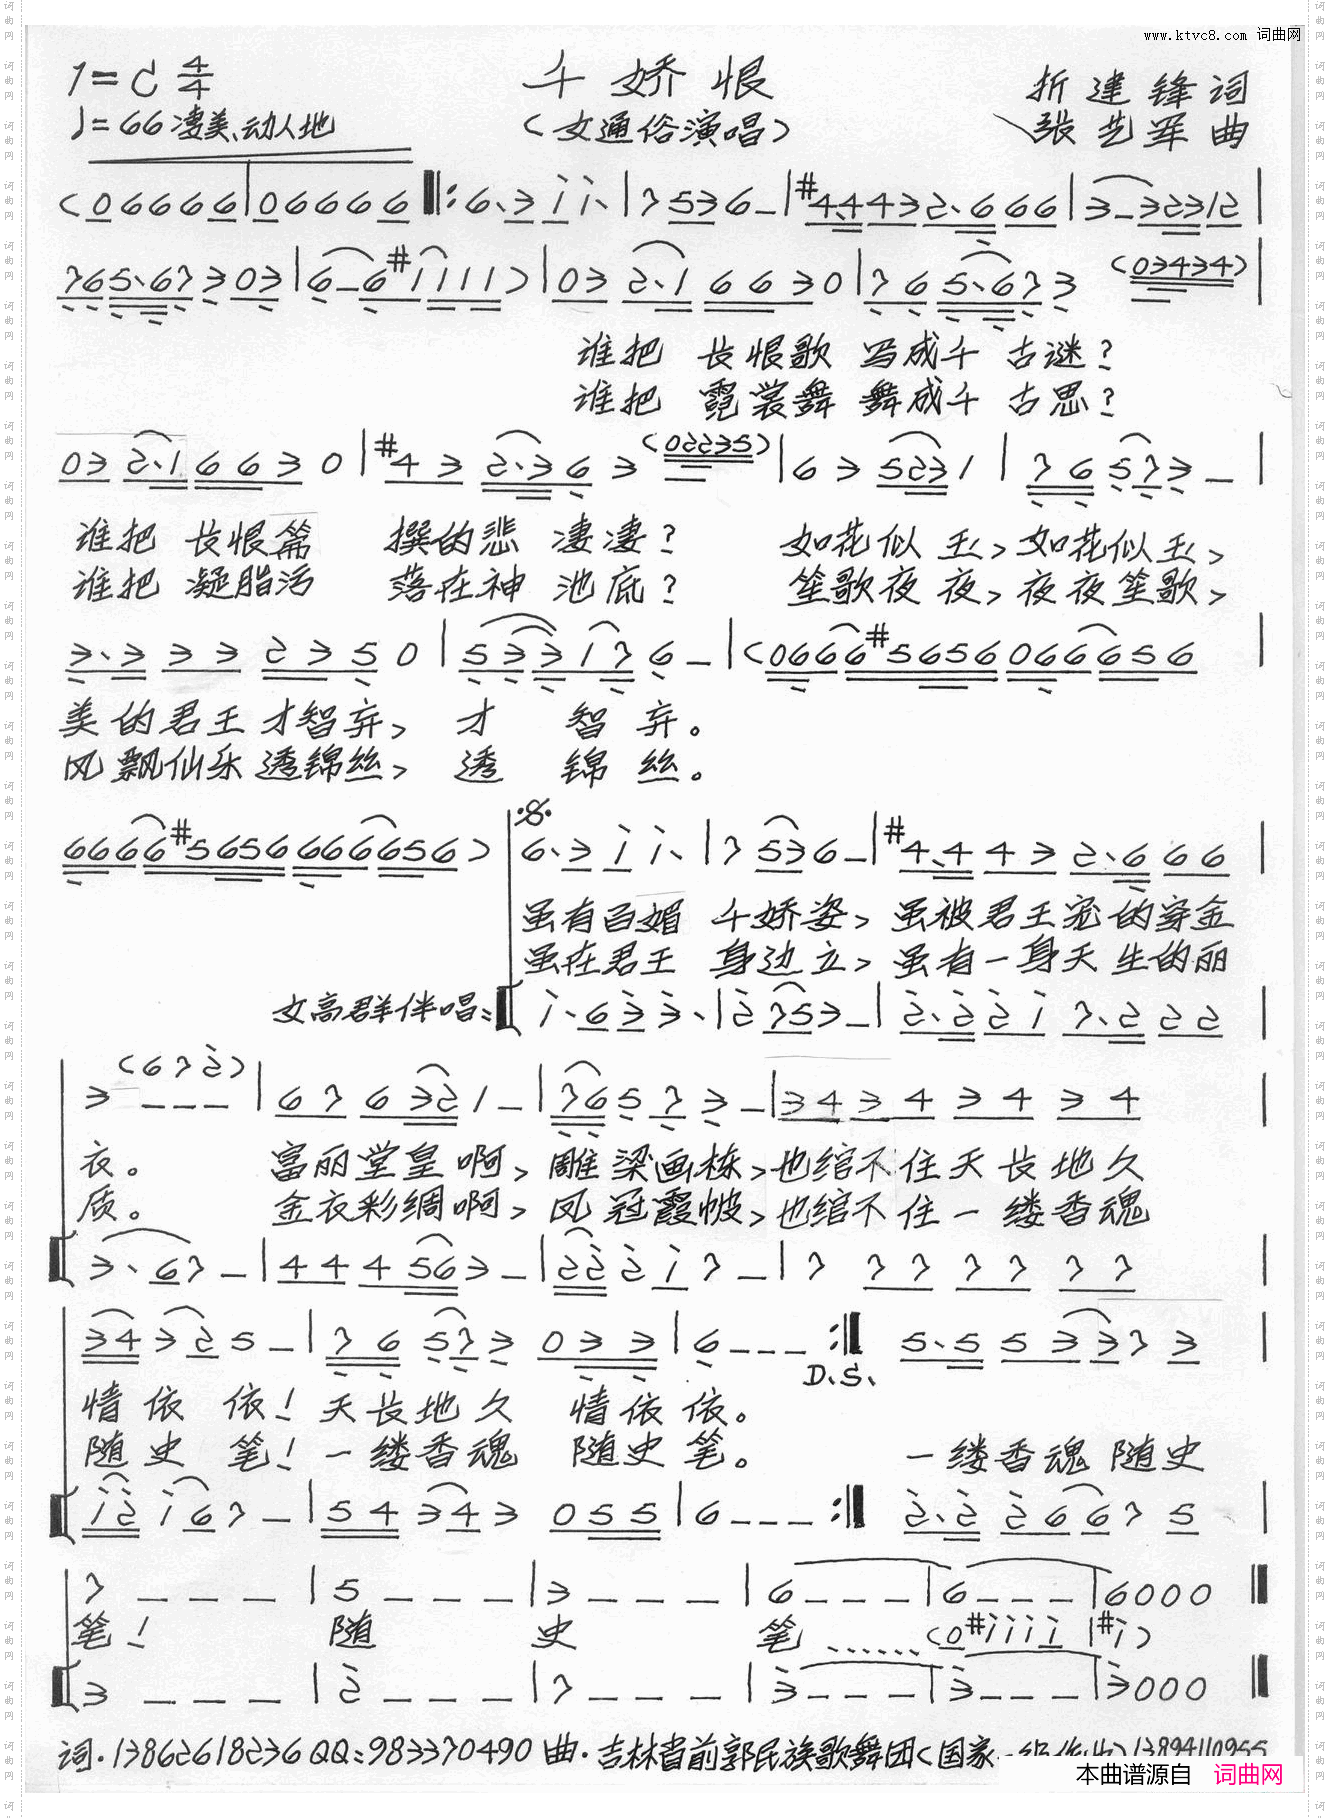 www.ktvc8.com 词曲网
1=C 4/4 千娇恨 折建锋词
♩=66 凄美、动人地 (女通俗演唱) 张艺军曲
(0 6 6 6 6 | 0 6 6 6 6 ‖: 6. 3 i i. | 7 5 3 6 - | #4. 4 4 3 2. 6 6 6 | 3 - 3 2 3 1 2 |
7 6 5. 6 7 3 0 3 | 6 - 6 #1 1 1 1) | 0 3 2. 1 6 6 3 0 | 7 6 5. 6 7 3 (0 3 4 3 4) |
谁把 长恨歌 写成千 古谜?
谁把 霓裳舞 舞成千 古思?
0 3 2. 1 6 6 3 0 | #4 3 2. 3 6 3 (0 2 2 3 5) | 6 3 5 2 3 1 | 7 6 5 7 3 - |
谁把 长恨篇 撰的悲 凄凄? 如花似 玉, 如花似玉,
谁把 凝脂污 落在神 池底? 笙歌夜 夜, 夜夜笙歌,
3. 3 3 3 2 3 5 0 | 5 3 3 1 7 6 - | (0 6 6 6 #5 6 5 6 0 6 6 6 5 6 |
美的君王才智弃, 才 智 弃。
风飘仙乐透锦丝, 透 锦 丝。
6 6 6 6 #5 6 5 6 6 6 6 6 5 6) | 6. 3 i i. | 7 5 3 6 - | #4. 4 4 3 2. 6 6 6 |
虽有百媚 千娇姿, 虽被君王宠的穿金
虽在君王 身边立, 虽有一身天生的丽
女高群伴唱: i. 6 3 3. | 2 7 5 3 - | 2. 2 2 i 7. 2 2 2 |
3 (6 7 2) - - - | 6 7 6 3 2 1 - | 7 6 5 7 3 - | 3 4 3 4 3 4 3 4 |
衣。 富丽堂皇啊, 雕梁画栋, 也绾不住天长地久
质。 金衣彩绸啊, 凤冠霞帔, 也绾不住一缕香魂
3. 6 7 - | 4 4 4 5 6 3 - | 2 2 2 i 7 - | 7 7 7 7 7 7 7 |
3 4 3 2 5 - | 7 6 5 7 3 0 3 3 | 6 - - - :‖ D.S. 5. 5 5 3 3 7 3 |
情依依! 天长地久 情依依。
随史笔! 一缕香魂 随史笔。 一缕香魂随史
i 2 i 6 7 - | 5 4 3 4 3 0 5 5 | 6 - - - :‖ 2. 2 2 6 6 7 5 |
7 - - - | 5 - - - | 3 - - - | 6 - - - | 6 - - - | 6 0 0 0 ‖
笔! 随 史 笔 ...... (0 #i i i i | #i)
3 - - - | 2 - - - | 7 - - - | 3 - - - | 3 - - - | 3 0 0 0 ‖
词·13862618236 QQ:983370490 曲·吉林省前郭民族歌舞团(国家一级作曲)13894110955
本曲谱源自 词曲网